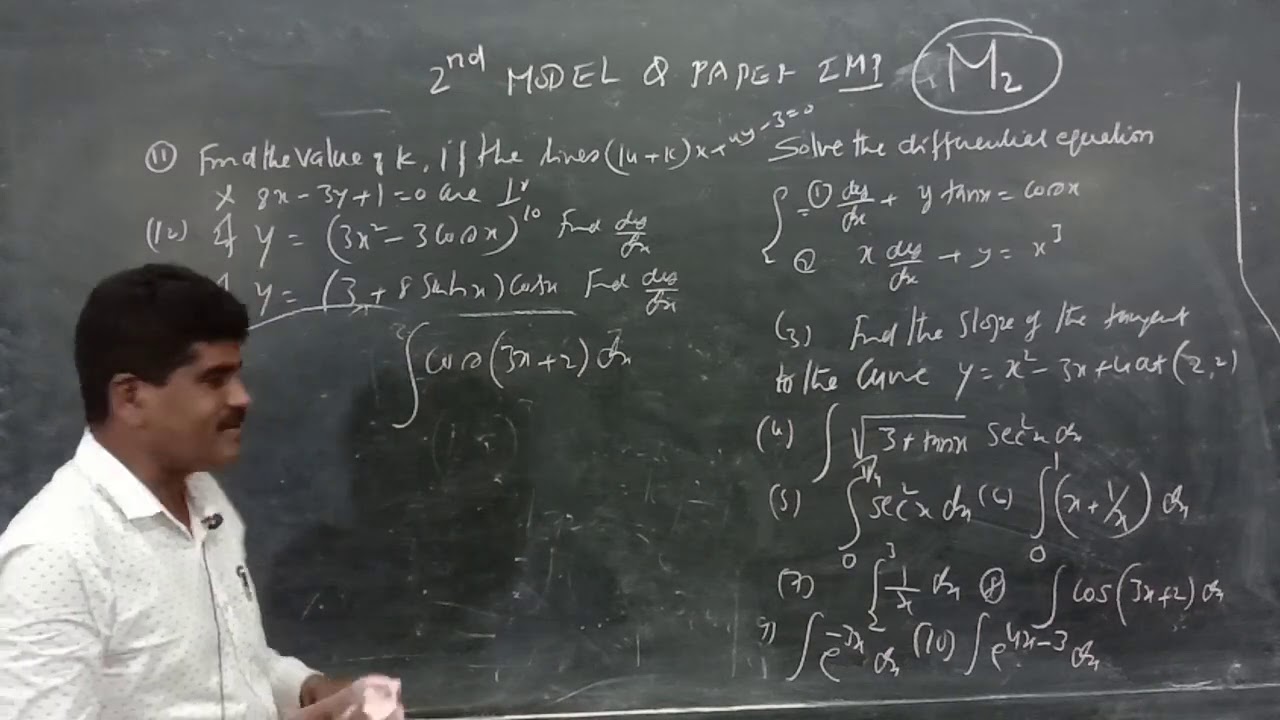 2nd MODEL Q PAPER IMP M2
(11) Find the value of k, if the lines (4+k)x+4y-3=0
& 8x-3y+1=0 are ⊥r
(12) If y = (3x²-3cosx)^10 Find dy/dx
y = (3+8sinhx)cosx Find dy/dx
∫cos(3x+2)dx
Solve the differential equation
(1) dy/dx + y tanx = cosx
(2) x dy/dx + y = x³
(3) Find the slope of the tangent
to the curve y = x²-3x+4 at (2,2)
(4) ∫√(3+tanx) sec²x dx
(5) ∫₀^(π/4) sec²x dx (6) ∫₀^1 (x+1/x) dx
(7) ∫₂^3 1/x dx (8) ∫cos(3x+2)dx
9) ∫e^(-3x) dx (10) ∫e^(4x-3) dx